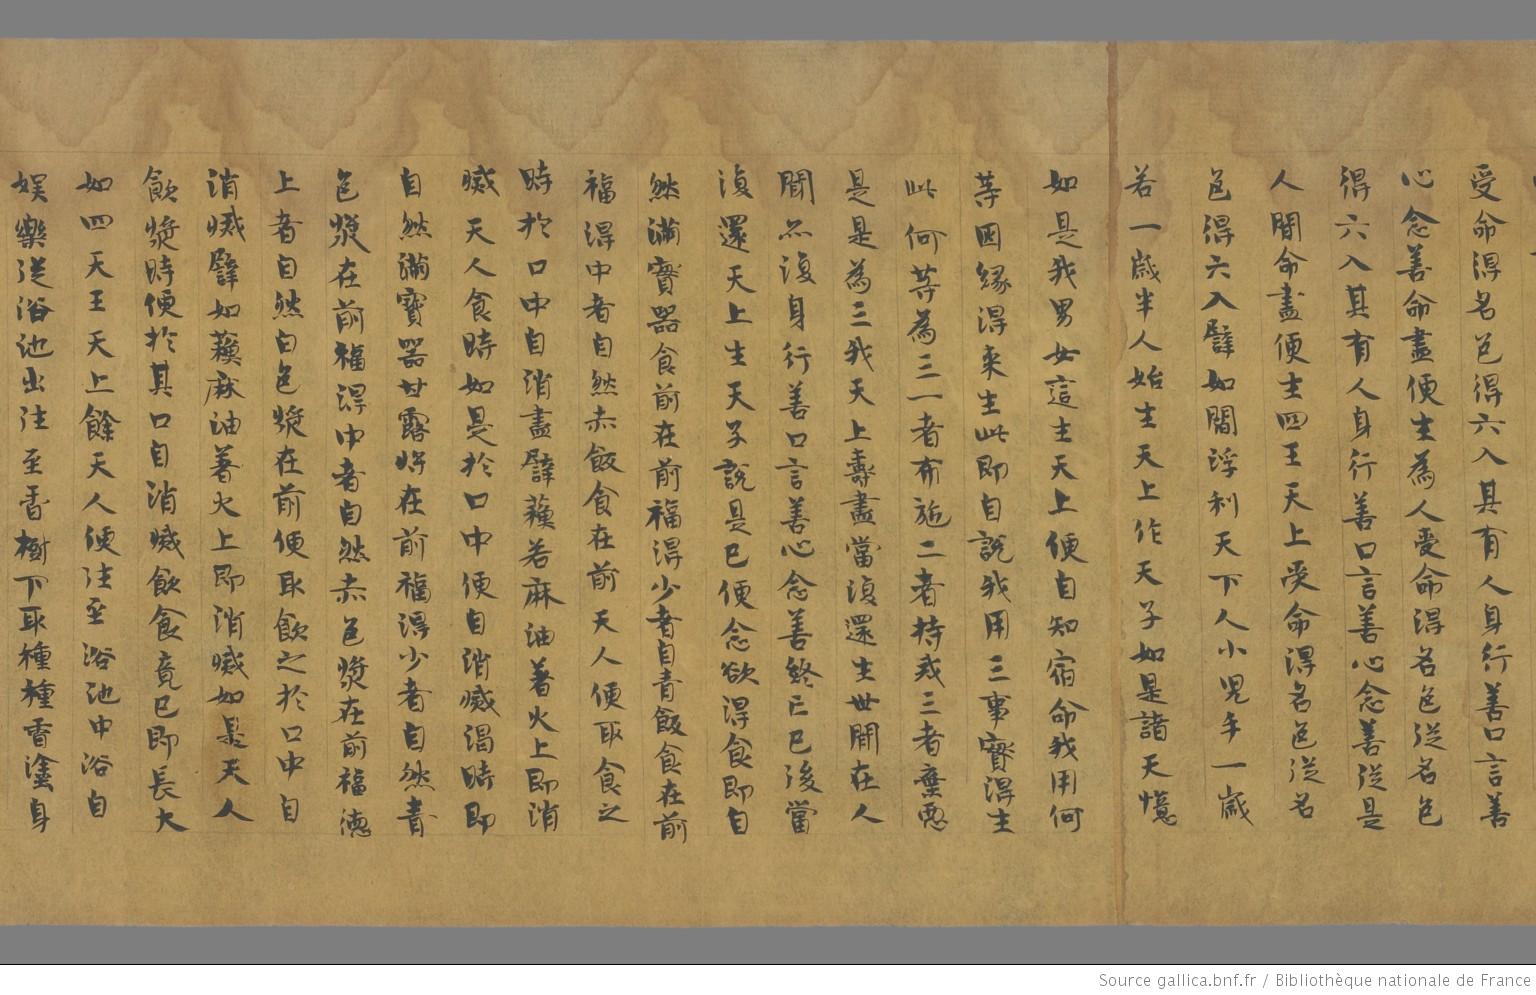 受命得名色得六入其有人身行善口言善
心念善命盡便生為人受命得名色從名色
得六入其有人身行善口言善心念善從是
人間命盡便生四王天上受命得名色從名
色得六入譬如閻浮利天下人小兒年一歲
若一歲半人始生天上作天子如是諸天憶
如是我男女這生天上便自知宿命我用何
等因緣得來生此即自說我用三事實得生
此何等為三一者布施二者持戒三者棄惡
是是為三我天上壽盡當復還生世間在人
間亦復身行善口言善心念善終亡已後當
復還天上生天子說是已便念欲得食即自
然滿寶器食前在前福得少者自青飯食在前
福得中者自然赤飯食在前天人便取食之
時於口中自消盡譬蘇若麻油著火上即消
滅天人食時如是於口中便自消滅渴時即
自然滿寶器甘露漿在前福得少者自然青
色漿在前福得中者自然赤色漿在前福德
上者自然白色漿在前便取飲之於口中自
消滅譬如蘇麻油著火上即消滅如是天人
飲漿時便於其口自消滅飲食竟已即長大
如四天王天上餘天人便往至浴池中浴自
娛樂從浴池出往至香樹下取種種香塗身
Source gallica.bnf.fr / Bibliothèque nationale de France